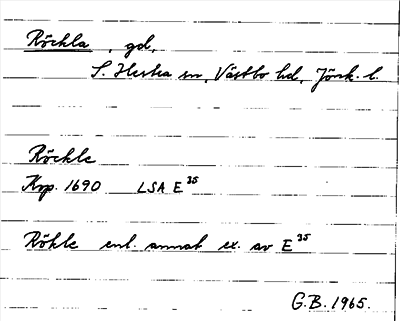 Röckla, gd,
S. Hestra sn, Västbo hd, Jönk. l.
Röckle
Kop. 1690 LSA E 35
Röhle enl. annat ex. av E 35
G.B. 1965.